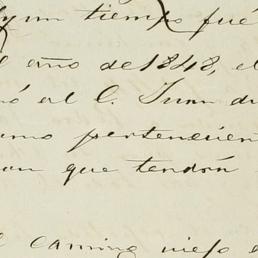 y un tiempo fué
año de 1848, el
al C. Juan de
como pertenecien
on que tendrán
camino viejo